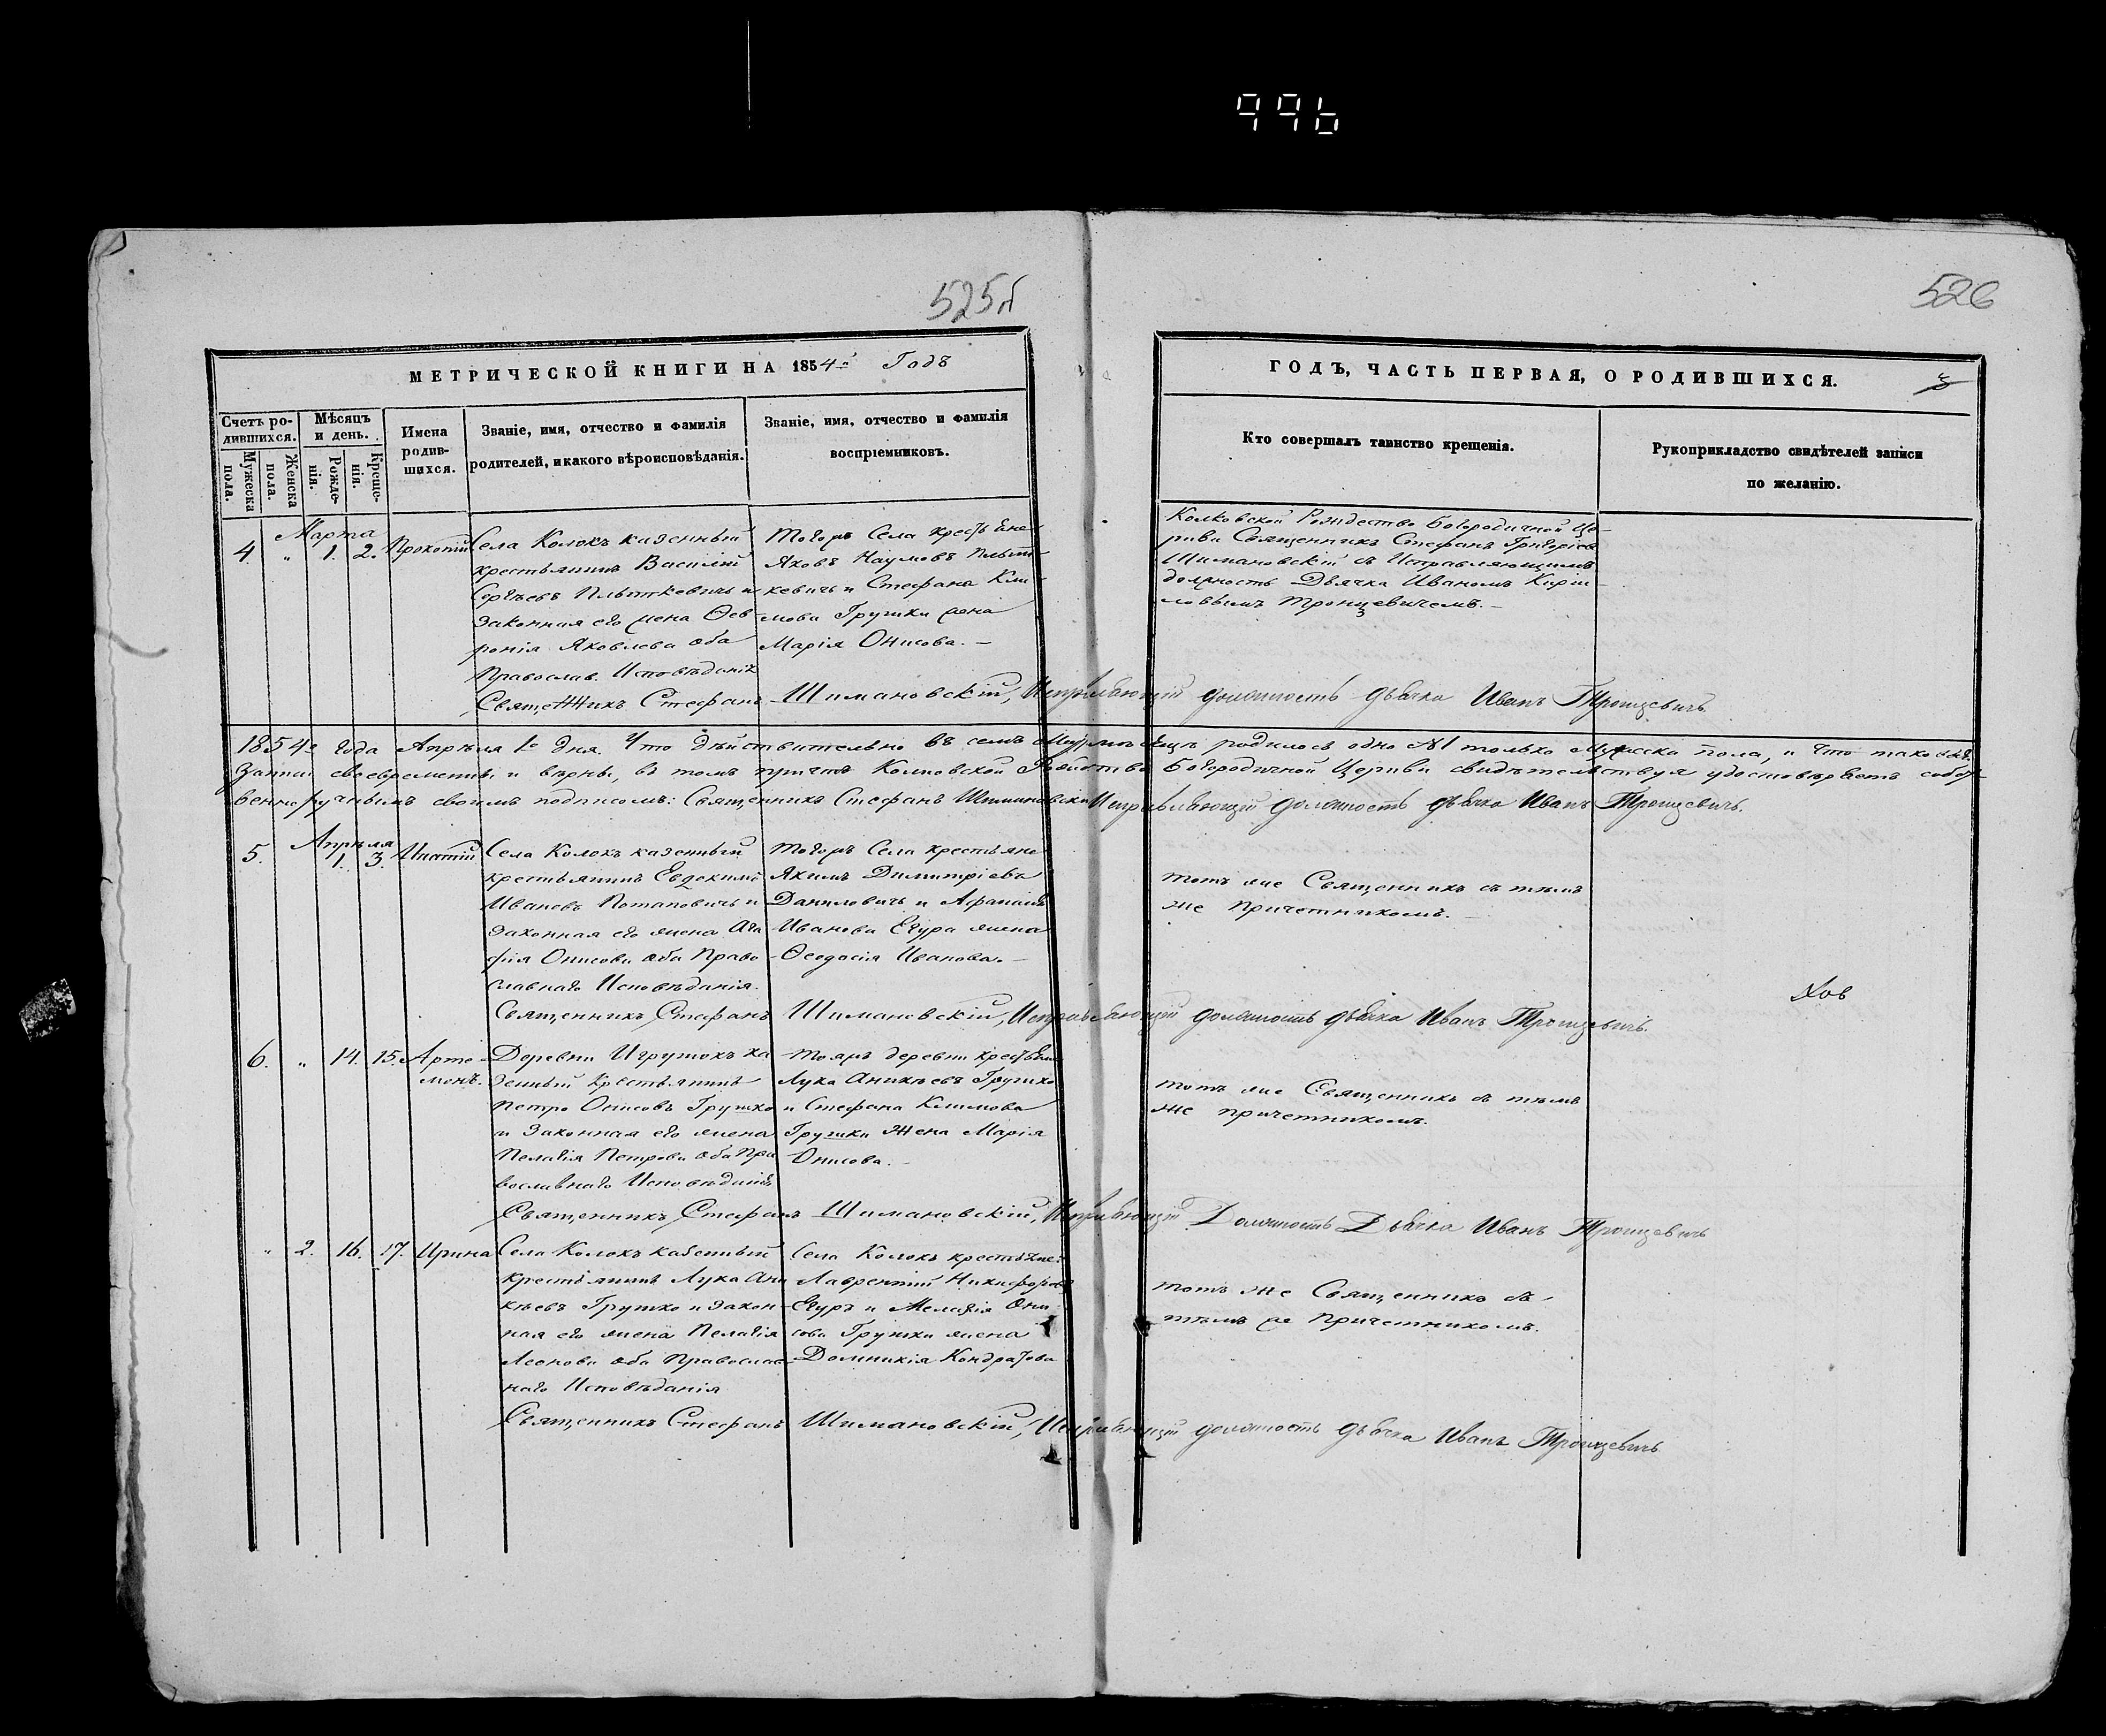 996
525б
526
МЕТРИЧЕСКОЙ КНИГИ НА 1854й Годъ
ГОДЪ, ЧАСТЬ ПЕРВАЯ, О РОДИВШИХСЯ.
Счетъ ро-
дившихся.
Мужеска
пола.
Женска
пола.
Мѣсяцъ
и день.
Рожде-
нія.
Креще-
нія.
Имена
родив-
шихся.
Званіе, имя, отчество и фамилія
родителей, и какого вѣроисповѣданія.
Званіе, имя, отчество и фамилія
воспріемниковъ.
Кто совершалъ таинство крещенія.
Рукоприкладство свидѣтелей записи
по желанію.
Марта
4 „ 1. 2. Прокопій
Села Колокъ казенный
крестьянинъ Василій
Сергѣевъ Плыткевичъ и
законная его жена Фев
ронія Яковлева оба
Православ. Исповѣданія
Тогожъ Села крестьяне
Яковъ Наумовъ Плыт
кевичъ и Стефана Кли
мова Грушки жена
Марія Онисова. —
Колковской Рождество Богородичной Це-
ркви Священникъ Стефанъ Григорьевъ
Шимановскій съ Исправляющимъ
должность Дьячка Иваномъ Кири
ловымъ Троицевичемъ. —
Священникъ Стефанъ Шимановскій, Исправляющій должность дьячка Иванъ Троицевичъ.
1854го года Апрѣля 1го дня. Что дѣйствительно въ семъ мѣсяцѣ родилось одно №1 только Мужеска пола, и что таковыя
записи своевременны и вѣрны, въ томъ причтъ Колковской Рождество Богородичной Церкви свидѣтельствуя удостовѣряетъ собст-
венноручнымъ своимъ подписомъ: Священникъ Стефанъ Шимановскій Исправляющій должность дьячка Иванъ Троицевичъ.
Апрѣля
5. 1. 3. Ипатій
Села Колокъ казенный
крестьянинъ Евдокимъ
Ивановъ Потаповичъ и
законная его жена Ага
фія Онисова оба Право
славнаго Исповѣданія.
Тогожъ Села крестьяне
Якимъ Димитріевъ
Даниловичъ и Афанасія
Иванова Егура жена
Феодосія Иванова. —
тотъ же Священникъ съ тѣмъ
же Причетникомъ. —
Священникъ Стефанъ Шимановскій, Исправляющій должность дьячка Иванъ Троицевичъ.
6. „ 14. 15. Арте-
монъ.
Деревни Игрушокъ ка
зенный Крестьянинъ
Петро Онисовъ Грушко
и Законная его жена
Пелагія Петрова оба Пра
вославнаго Исповѣданія
Тояжъ деревни крестьяне
Лука Аникѣевъ Грушко
и Стефана Климова
Грушки Жена Марія
Онисова. —
тотъ же Священникъ съ тѣмъ
же причетникомъ.
Священникъ Стефанъ Шимановскій, Исправляющій Должность Дьячка Иванъ Троицевичъ
„ 2. 16. 17. Ирина
Села Колокъ казенный
крестьянинъ Лука Ани
кѣевъ Грушко и закон-
ная его жена Пелагія
Леонова оба Православ-
наго Исповѣданія
Села Колокъ крестьяне:
Лаврентій Никифоровъ
Егуръ и Мелафія Они
сова Грушки жена
Домникія Кондратова
тотъ же Священникъ съ-
тѣмъ же Причетникомъ.
Священникъ Стефанъ Шимановскій, Исправляющій должность дьячка Иванъ Троицевичъ